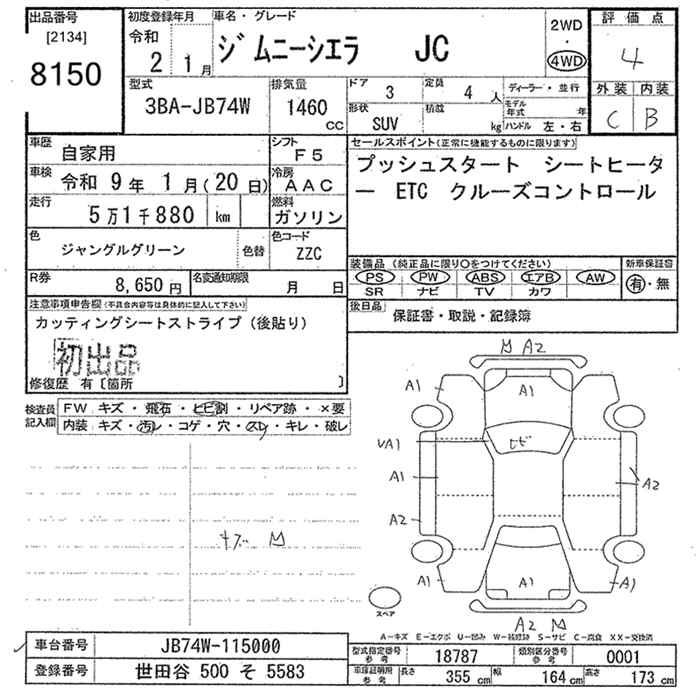 出品番号
[2134]
8150
初度登録年月
令和
2 1月
車名・グレード
ジムニーシエラ JC
2WD
・
4WD
評価点
4
外装 内装
C B
型式
3BA-JB74W
排気量
1460
cc
ドア
3
定員
4 人
形状
SUV
積載
kg
ディーラー・並行
モデル年式 年
ハンドル 左・右
車歴
自家用
シフト
F5
車検
令和 9年 1月(20日)
冷房
AAC
走行
5万1千880 km
燃料
ガソリン
色
ジャングルグリーン
色替
色コード
ZZC
R券
8,650円
名変通知期限
月 日
セールスポイント(正常に機能するものに限ります)
プッシュスタート シートヒータ
ー ETC クルーズコントロール
装備品 (純正品に限り○をつけてください)
PS PW ABS エアB AW
SR ナビ TV カワ
新車保証書
有・無
後日品
保証書・取説・記録簿
注意事項申告欄(不具合内容等は具体的に記入して下さい)
カッティングシートストライプ(後貼り)
初出品
修復歴 有〔箇所 〕
検査員
記入欄
FW キズ・飛石・ヒビ割・リペア跡・×要
内装 キズ・汚レ・コゲ・穴・スレ・キレ・破レ
キズ M
M A2
A1
A1
A1
VA1
ヒビ
A1
A2
A2
A1
A1
A1
A2 M
スペア
A-キズ E-エクボ U-凹み W-補修跡 S-サビ C-腐食 XX-交換済
車台番号
JB74W-115000
登録番号
世田谷 500 そ 5583
型式指定番号
参考
18787
類別区分番号
参考
0001
車庫証明用
参考
長さ
355 cm
幅
164 cm
高さ
173 cm